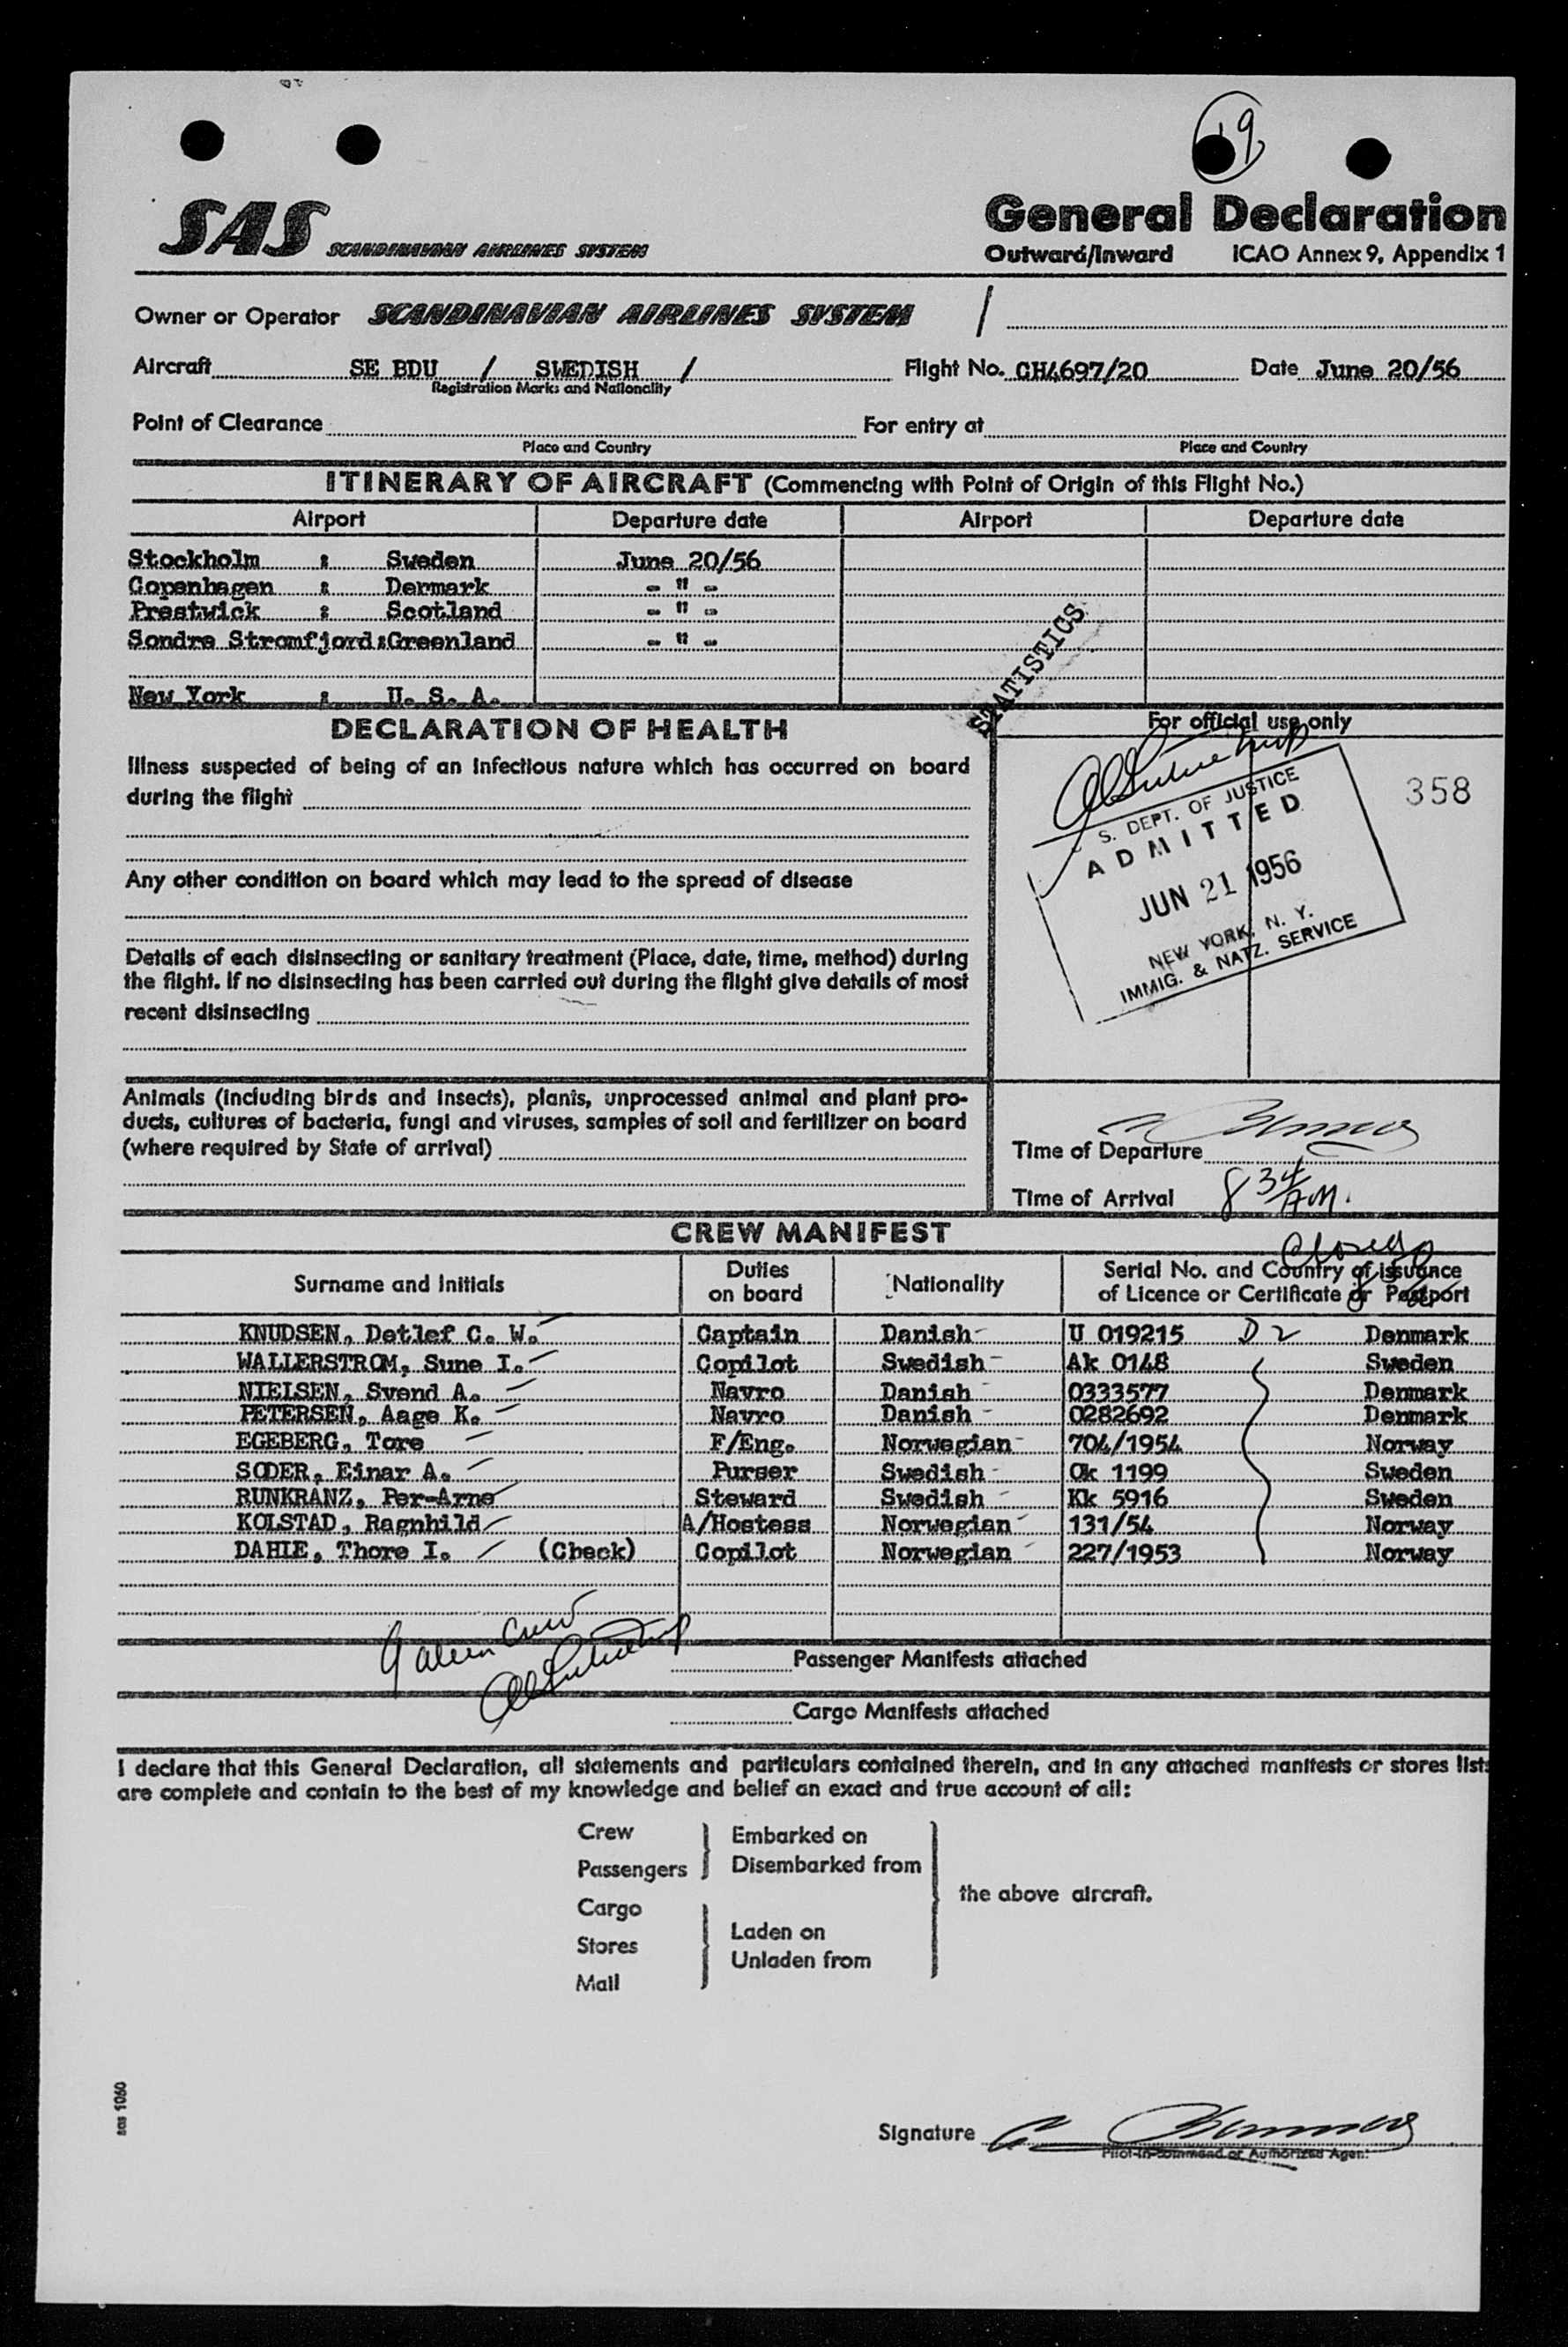 19
SAS SCANDINAVIAN AIRLINES SYSTEM
General Declaration
Outward/Inward ICAO Annex 9, Appendix 1
Owner or Operator SCANDINAVIAN AIRLINES SYSTEM /
Aircraft SE BDU / SWEDISH / Flight No. GH4697/20 Date June 20/56
Registration Marks and Nationality
Point of Clearance For entry at
Place and Country Place and Country
ITINERARY OF AIRCRAFT (Commencing with Point of Origin of this Flight No.)
Airport Departure date Airport Departure date
Stockholm : Sweden June 20/56
Copenhagen : Denmark - " -
Prestwick : Scotland - " -
Sondre Stromfjord:Greenland - " -
New York : U. S. A.
STATISTICS
DECLARATION OF HEALTH
Illness suspected of being of an infectious nature which has occurred on board
during the flight
Any other condition on board which may lead to the spread of disease
Details of each disinsecting or sanitary treatment (Place, date, time, method) during
the flight. If no disinsecting has been carried out during the flight give details of most
recent disinsecting
For official use only
358
S. DEPT. OF JUSTICE
ADMITTED
JUN 21 1956
NEW YORK, N. Y.
IMMIG. & NATZ. SERVICE
Animals (including birds and insects), plants, unprocessed animal and plant pro-
ducts, cultures of bacteria, fungi and viruses, samples of soil and fertilizer on board
(where required by State of arrival)
Time of Departure
Time of Arrival 8 34 AM.
CREW MANIFEST
Surname and Initials Duties on board Nationality Serial No. and Country of issuance
of Licence or Certificate or Passport
KNUDSEN, Detlef C. W. Captain Danish U 019215 D2 Denmark
WALLERSTROM, Sune I. Copilot Swedish Ak 0148 Sweden
NIELSEN, Svend A. Navro Danish 0333577 Denmark
PETERSEN, Aage K. Navro Danish 0282692 Denmark
EGEBERG, Tore F/Eng. Norwegian 704/1954 Norway
SODER, Einar A. Purser Swedish Ok 1199 Sweden
RUNKRANZ, Per-Arne Steward Swedish Kk 5916 Sweden
KOLSTAD, Ragnhild A/Hostess Norwegian 131/54 Norway
DAHLE, Thore I. (Check) Copilot Norwegian 227/1953 Norway
9 alien crew
Passenger Manifests attached
Cargo Manifests attached
I declare that this General Declaration, all statements and particulars contained therein, and in any attached manifests or stores lists
are complete and contain to the best of my knowledge and belief an exact and true account of all:
Crew
Passengers
Cargo
Stores
Mail
Embarked on
Disembarked from
Laden on
Unladen from
the above aircraft.
sas 1060
Signature
Pilot-in-command or Authorized Agent